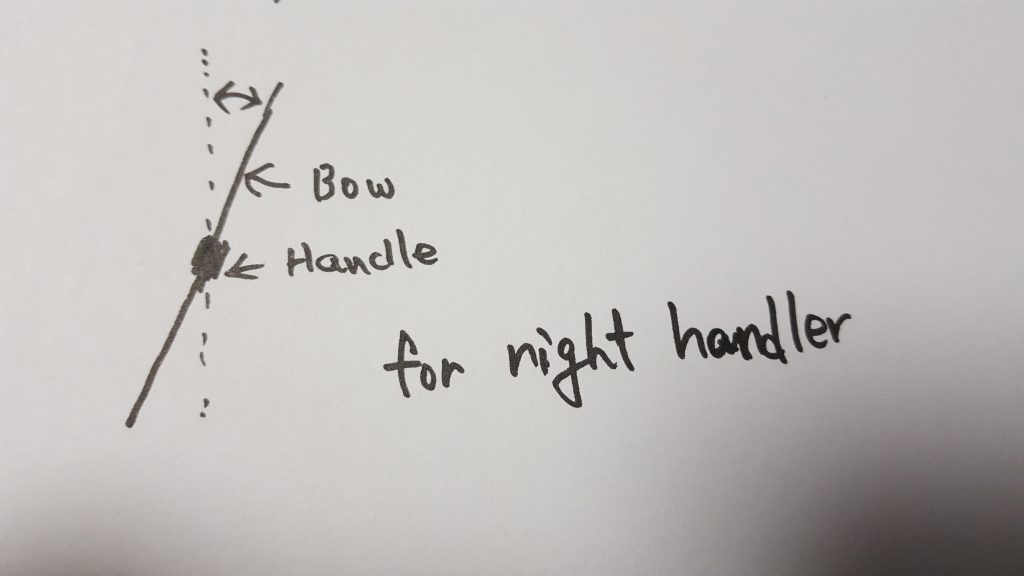 Bow
Handle
for right handler